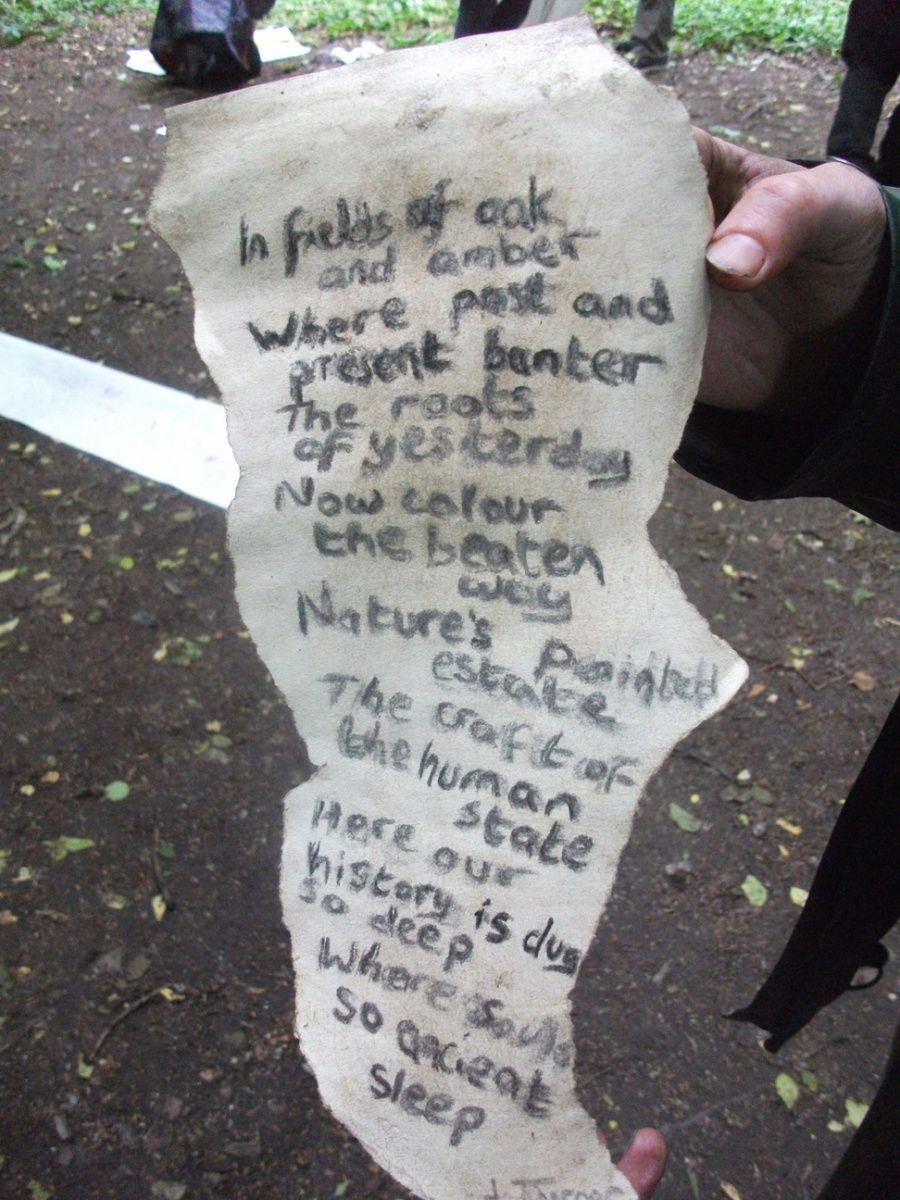 In fields of oak
and amber
Where past and
present banter
The roots
of yesterday
Now colour
the beaten
way
Nature's painted
estate
The craft of
the human
state
Here our
history is dug
so deep
Where souls
so ancient
sleep
J